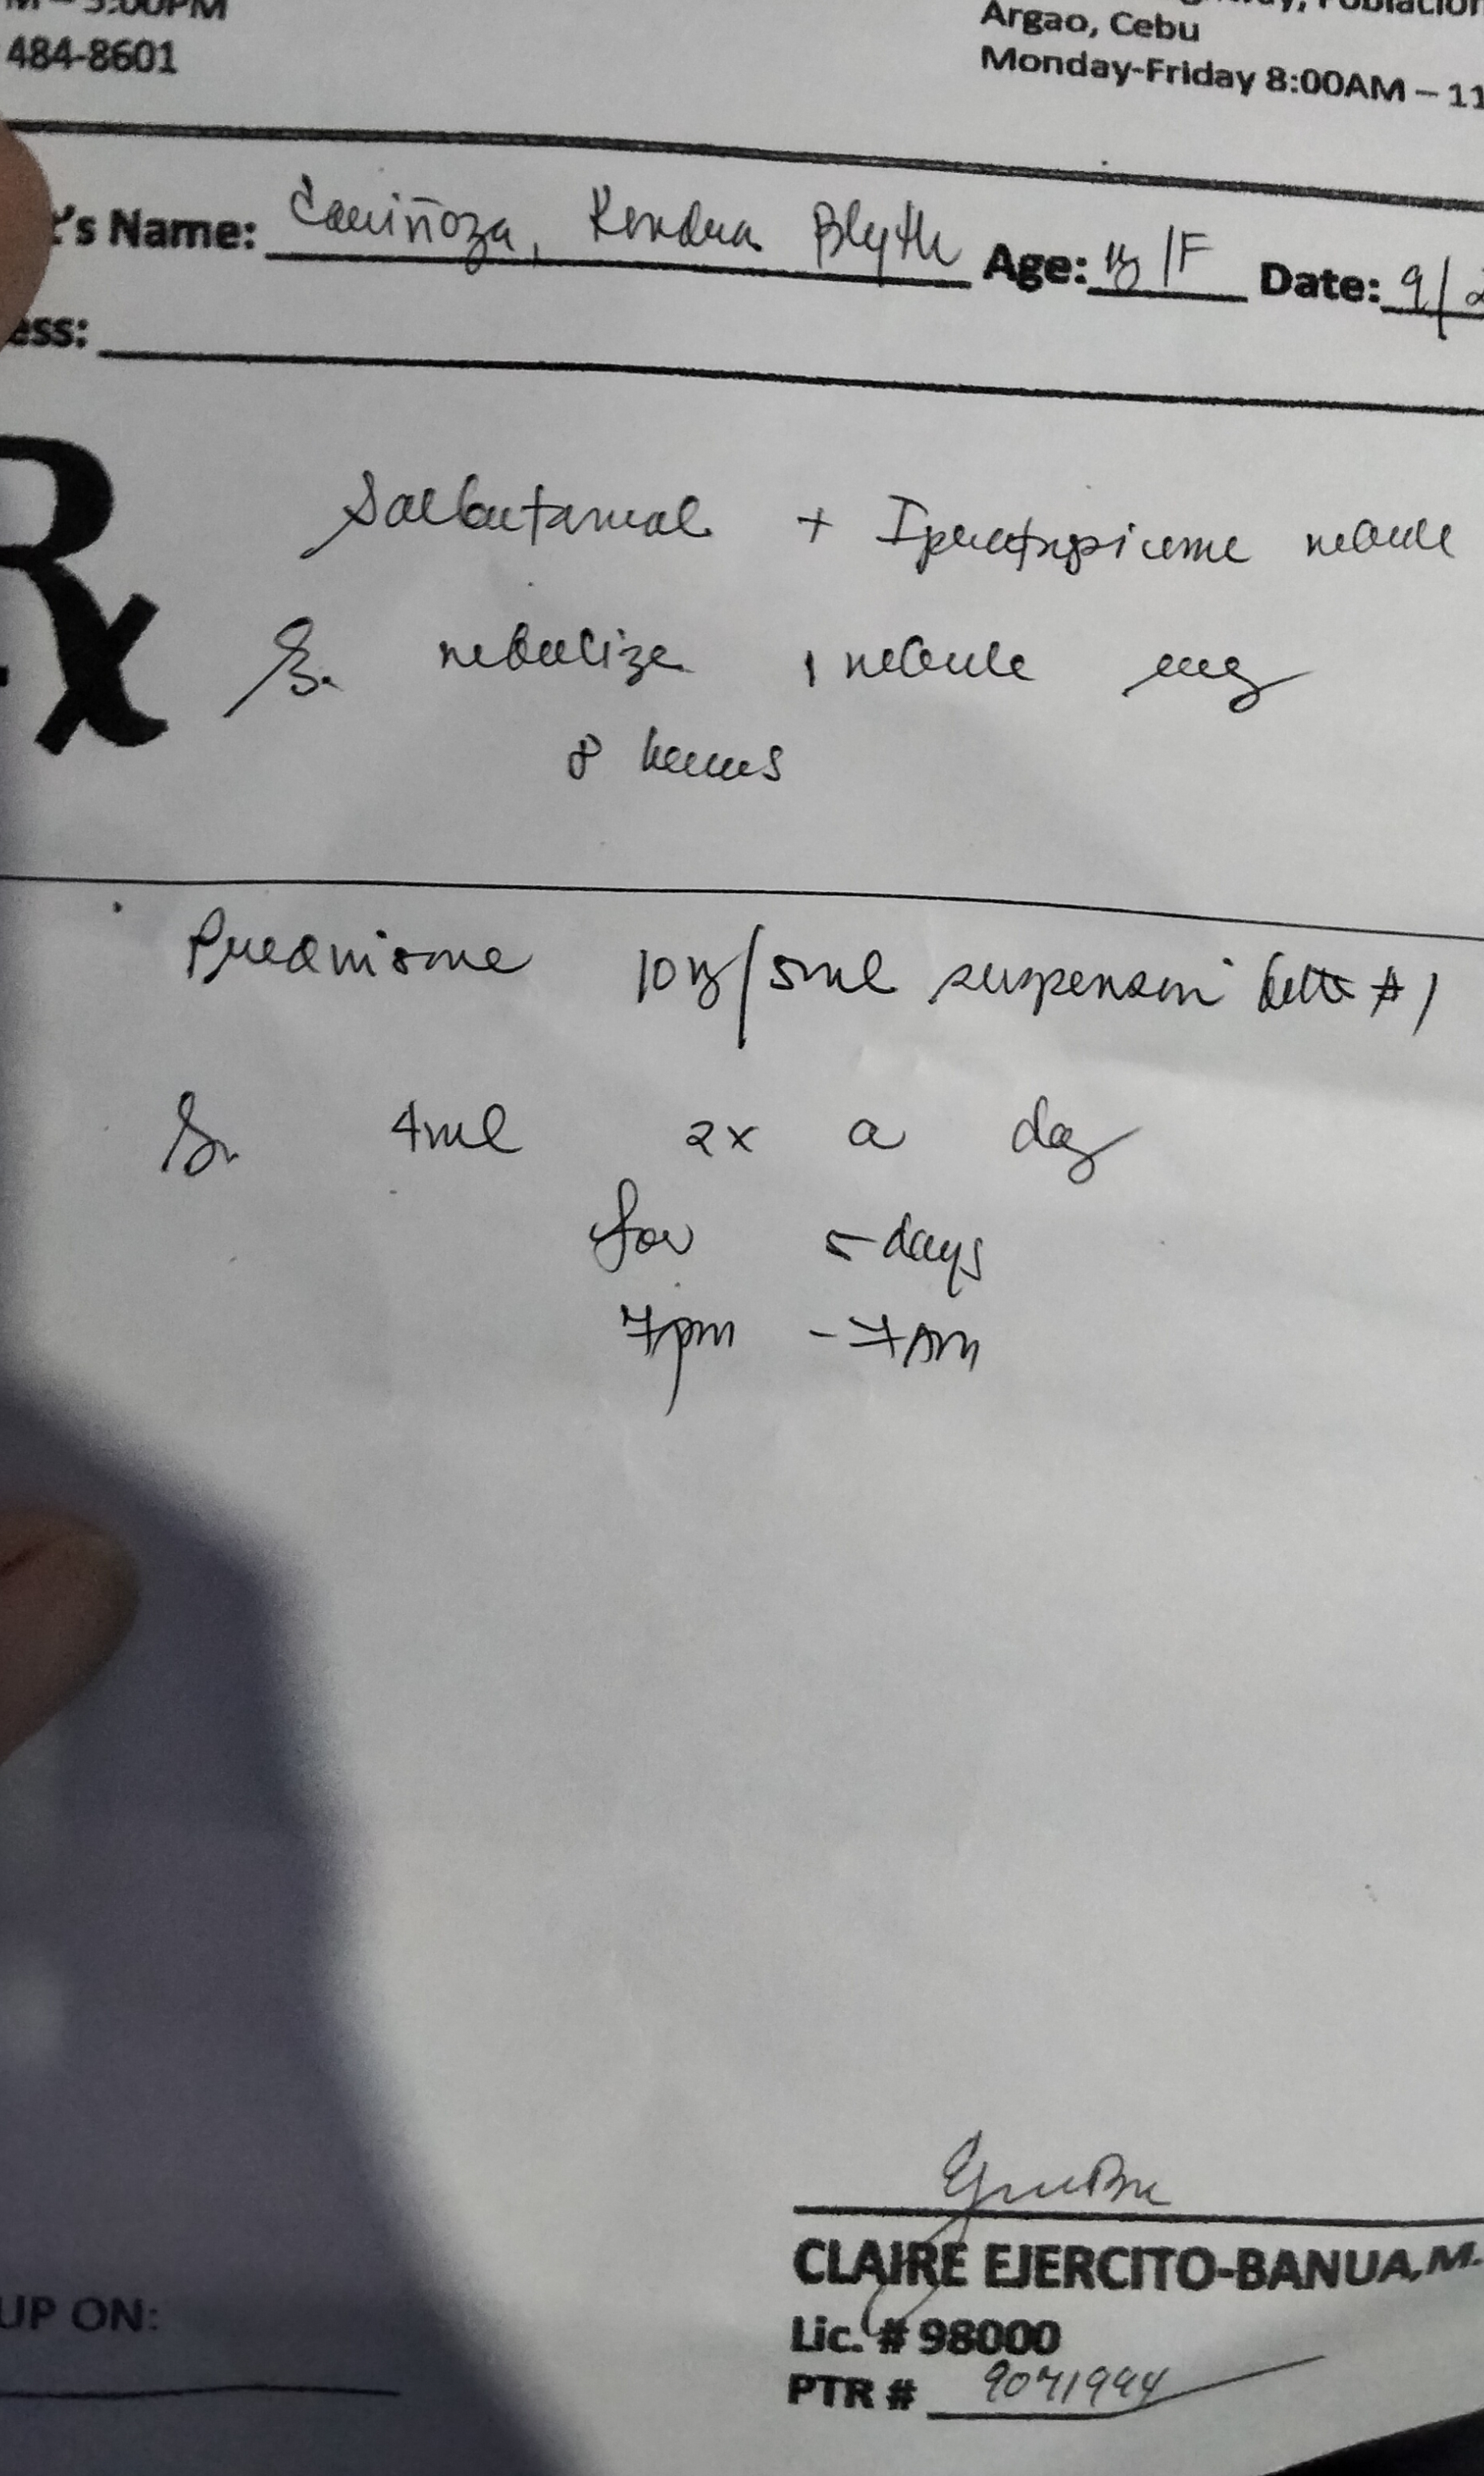 5:00PM
484-8601
Argao, Cebu
Monday-Friday 8:00AM – 11
's Name: Caviñoza, Kendra Blyth Age: /F Date: 9/2
ess:
Rx
Salbutamol + Ipratropium nebule
nebulize 1 nebule every
8 hours
Prednisone 10mg/5ml suspension bottle #1
4ml 2x a day
for 5 days
7pm - 7AM
CLAIRE EJERCITO-BANUA, M.
Lic. # 98000
PTR # 9071994
UP ON: